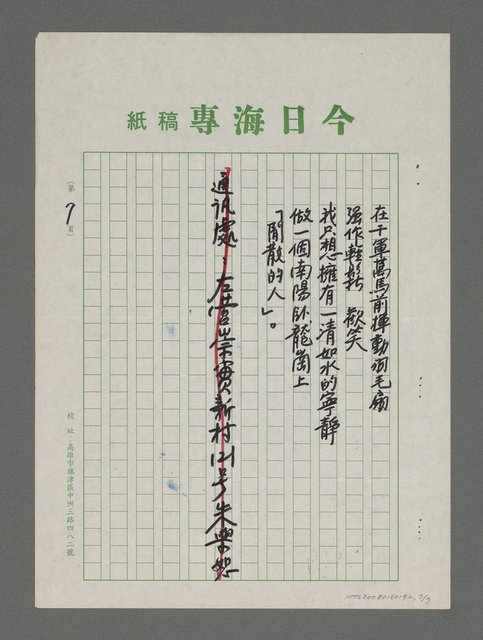 今日海專稿紙
在千軍萬馬前揮動羽毛扇
强作輕鬆 歡笑
我只想擁有一清如水的寧靜
做一個南陽臥龍崗上
「閒散的人」。
通訊處：左營崇實新村121号朱學恕
(第7頁)
校址：高雄市旗津區中洲三路四八二號
NMTL20080180192, 7/7